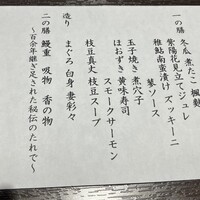 一の膳 冬瓜煮たこ 楓麩
紫陽花見立てジュレ
稚鮎南蛮漬け ズッキーニ
蓼ソース
玉子焼き 煮穴子
ほおずき黄味寿司
スモークサーモン
枝豆真丈 枝豆スープ
造り まぐろ 白身 妻彩々
二の膳 鰻重 吸物 香の物
〜百余年継ぎ足された秘伝のたれで〜